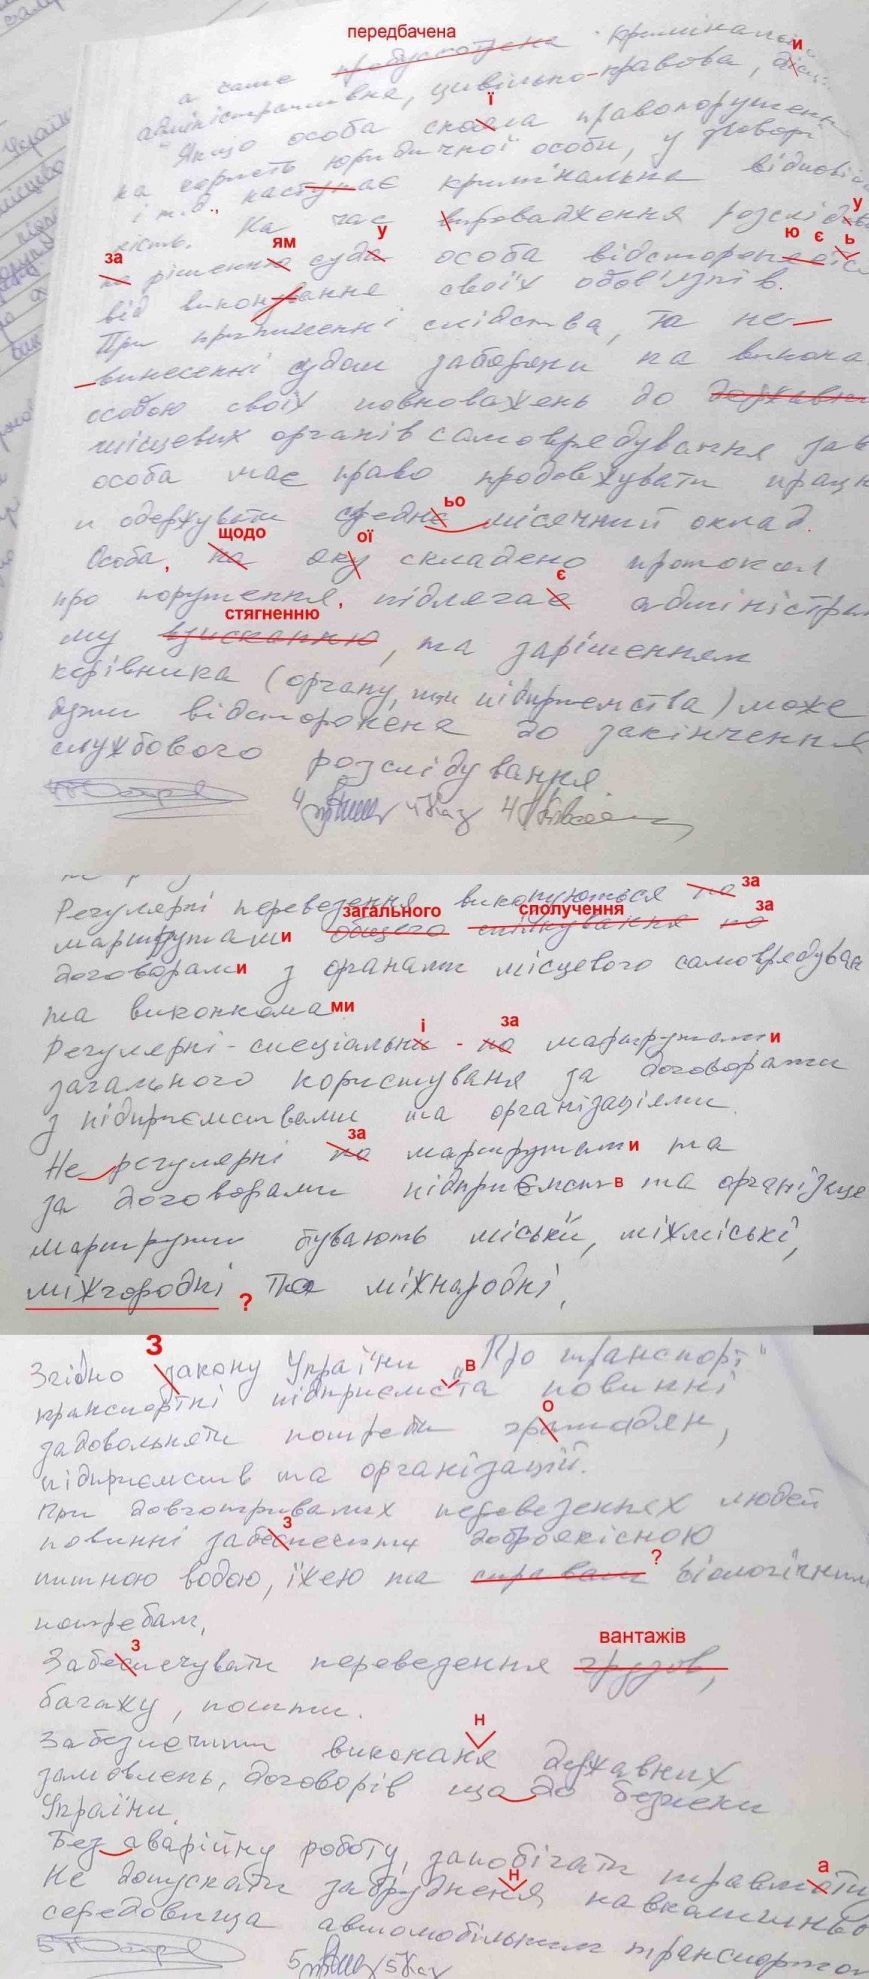 передбачена
а саме предусмотрена кримінальна и
адміністративна, цивільно-правова, дісц
ї
Якщо особа скоєла правопорушення
на користь юридичної особи, у договорі
і т.д., наступає кримінальна відповідаль
ність. На час впровадження розслідува у
за ям у ю є ь
по рішенню суда особа відсторонєоїся
від виконування своїх обов'язків.
При припиненні слідства, та не
винесенні судом заборони на викона
особою своїх повноважень до державни
місцевих органів самоврядування
особа має право продовжувати працю
ьо
и одержувати средне місячний оклад.
щодо ої
Особа, на яку складено протокол
є
про порушення, підлягає адміністра
стягненню
му взисканню, та зарішенням
керівника (органу, чи підприємства) може
бути відсторонена до закінчення
службового розслідування
Регулярні перевезення виконуються по за
загального сполучення за
маршрутами общего спілкування по
договорами з органами місцевого самоврядуван
та виконкомами
і за
Регулярні-спеціальни - по маршрутами
загального користуваня за договорами
з підприємствами та організаціями.
за
Не регулярні по маршрутами та
за договорами підприємств та організаці
маршрути бувають міські, міжміські,
міжгородні ? та міжнародні,
З
Згідно закону України "Про транспорт"
в
транспортні підприємста повинні
о
задовольняти потреби грамадян,
підприємств та організацій.
При довготривалих перевезеннях людей
з
повинні забеспечити доброякісною
?
питною водою, їжею та справам біологічним
потребам,
з вантажів
Забеспечувати переведення грузов,
багажу, пошти.
н
Забезпечити виконаня державних
замовлень, договорів що до безпеки
України
Без аварійну роботу, запобігати травмати а
н
Не допускати забрудненя навколишньо
середовища автомобільним транспортом